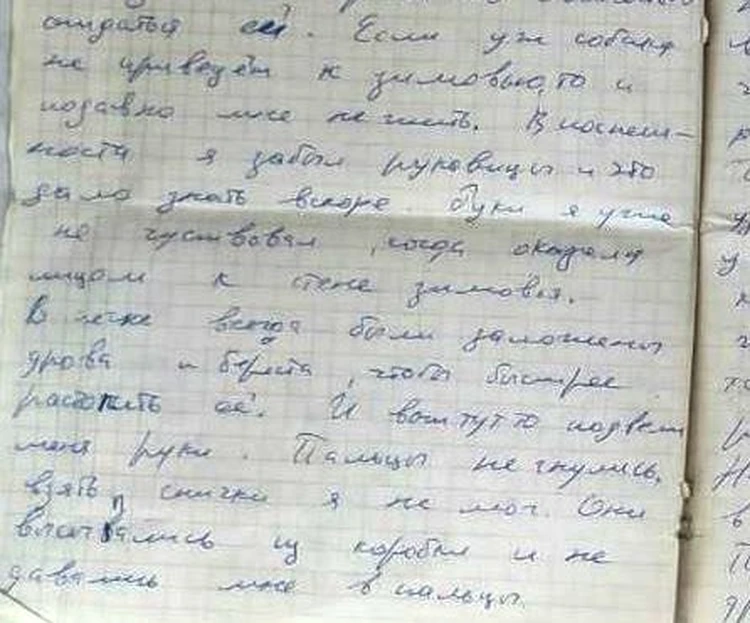 ей. Если уж собака
не приведёт к зимовью, то и
подавно мне не жить. В поспеш-
ности я забыл рукавицы и это
дало знать вскоре. Руки я уже
не чуствовал, когда оказался
лицом к стене зимовья.
В печке всегда были заложены
дрова и береста, чтобы быстрее
растопить её. И вот тут то подвели
меня руки. Пальцы не гнулись,
взять спички я не мог. Они
из коробки и не
давались мне в пальцы.